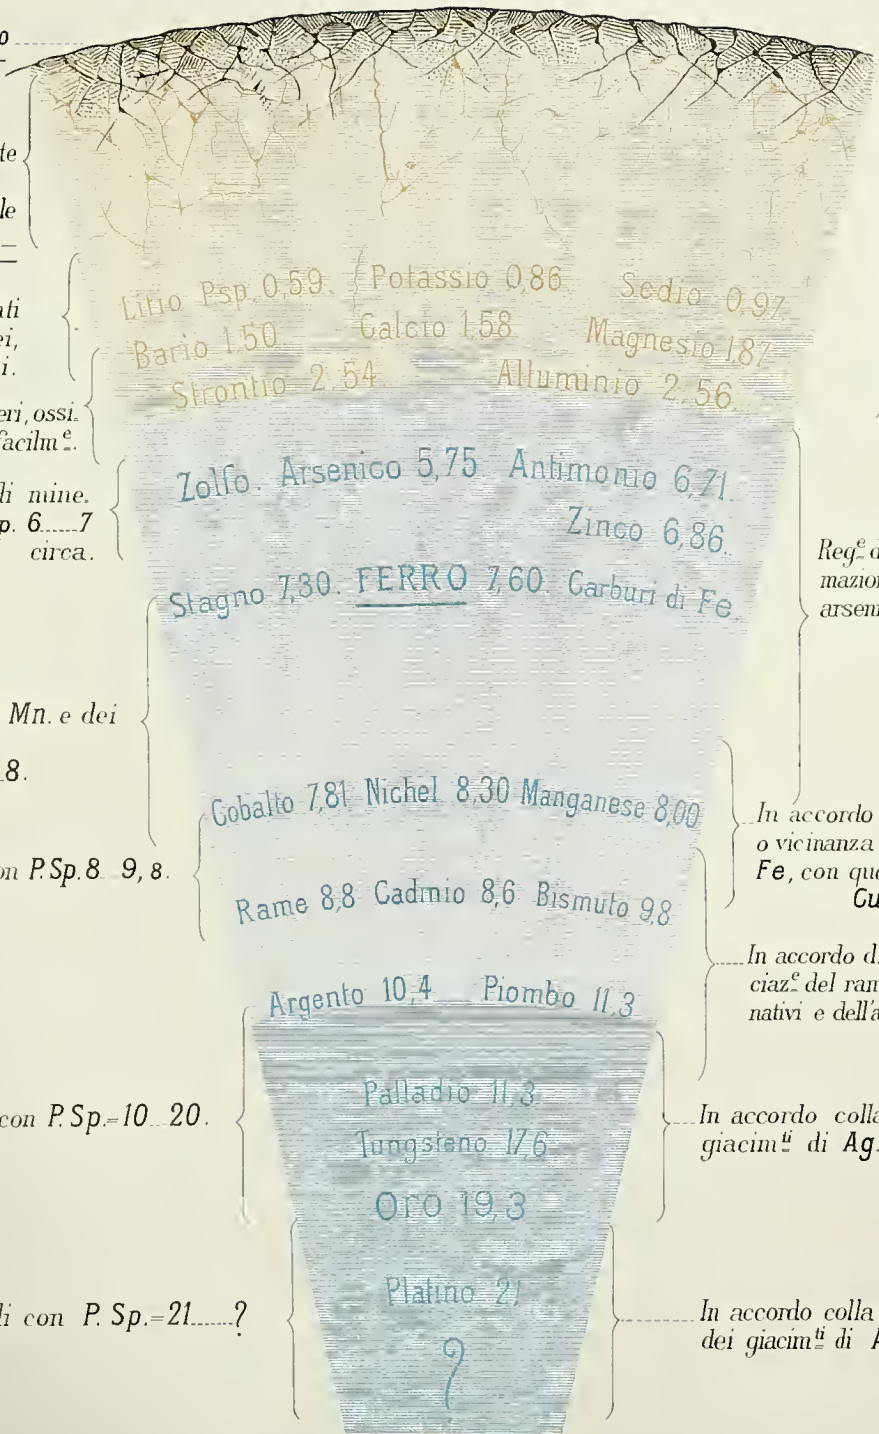 o
te
le
ati
ei,
i.
eri, ossi.
facilmᵉ.
di mine.
p. 6......7
circa.
Mn. e dei
8.
on P.Sp. 8 9, 8.
con P. Sp.=10 20.
li con P. Sp.=21......?
Litio Psp. 0,59. Potassio 0,86 Sodio 0,97.
Bario 1,50. Calcio 1,58 Magnesio 1,87
Strontio 2,54. Alluminio 2,56.
Zolfo. Arsenico 5,75. Antimonio 6,71.
Zinco 6,86.
Stagno 7,30. FERRO 7,60. Carburi di Fe.
Cobalto 7,81 Nichel 8,30 Manganese 8,00
Rame 8,8 Cadmio 8,6 Bismuto 9,8
Argento 10,4 Piombo 11,3
Palladio 11,3
Tungsteno 17,6
Oro 19,3
Platino 21
?
Regᵉ d
mazion
arseni
In accordo
o vicinanza
Fe, con que
Cu
In accordo d
ciazᵉ del ram
nativi e dell'a
In accordo colla
giacimᵗⁱ di Ag.
In accordo colla
dei giacimᵗⁱ di A